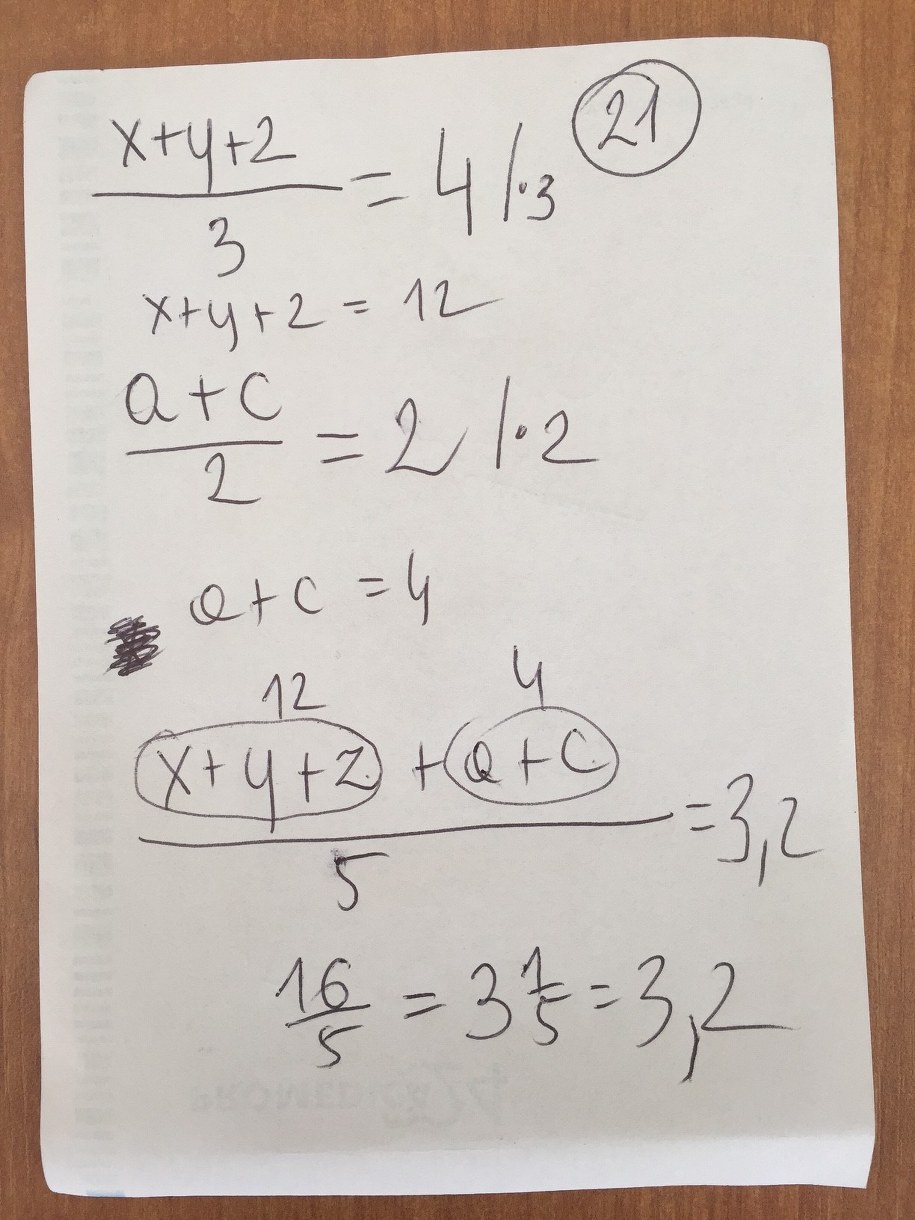 21
x+y+2
3
= 4 /·3
x+y+2 = 12
a+c
2
= 2 /·2
a+c = 4
12 4
x+y+z + a+c
5
= 3,2
16/5 = 3 1/5 = 3,2